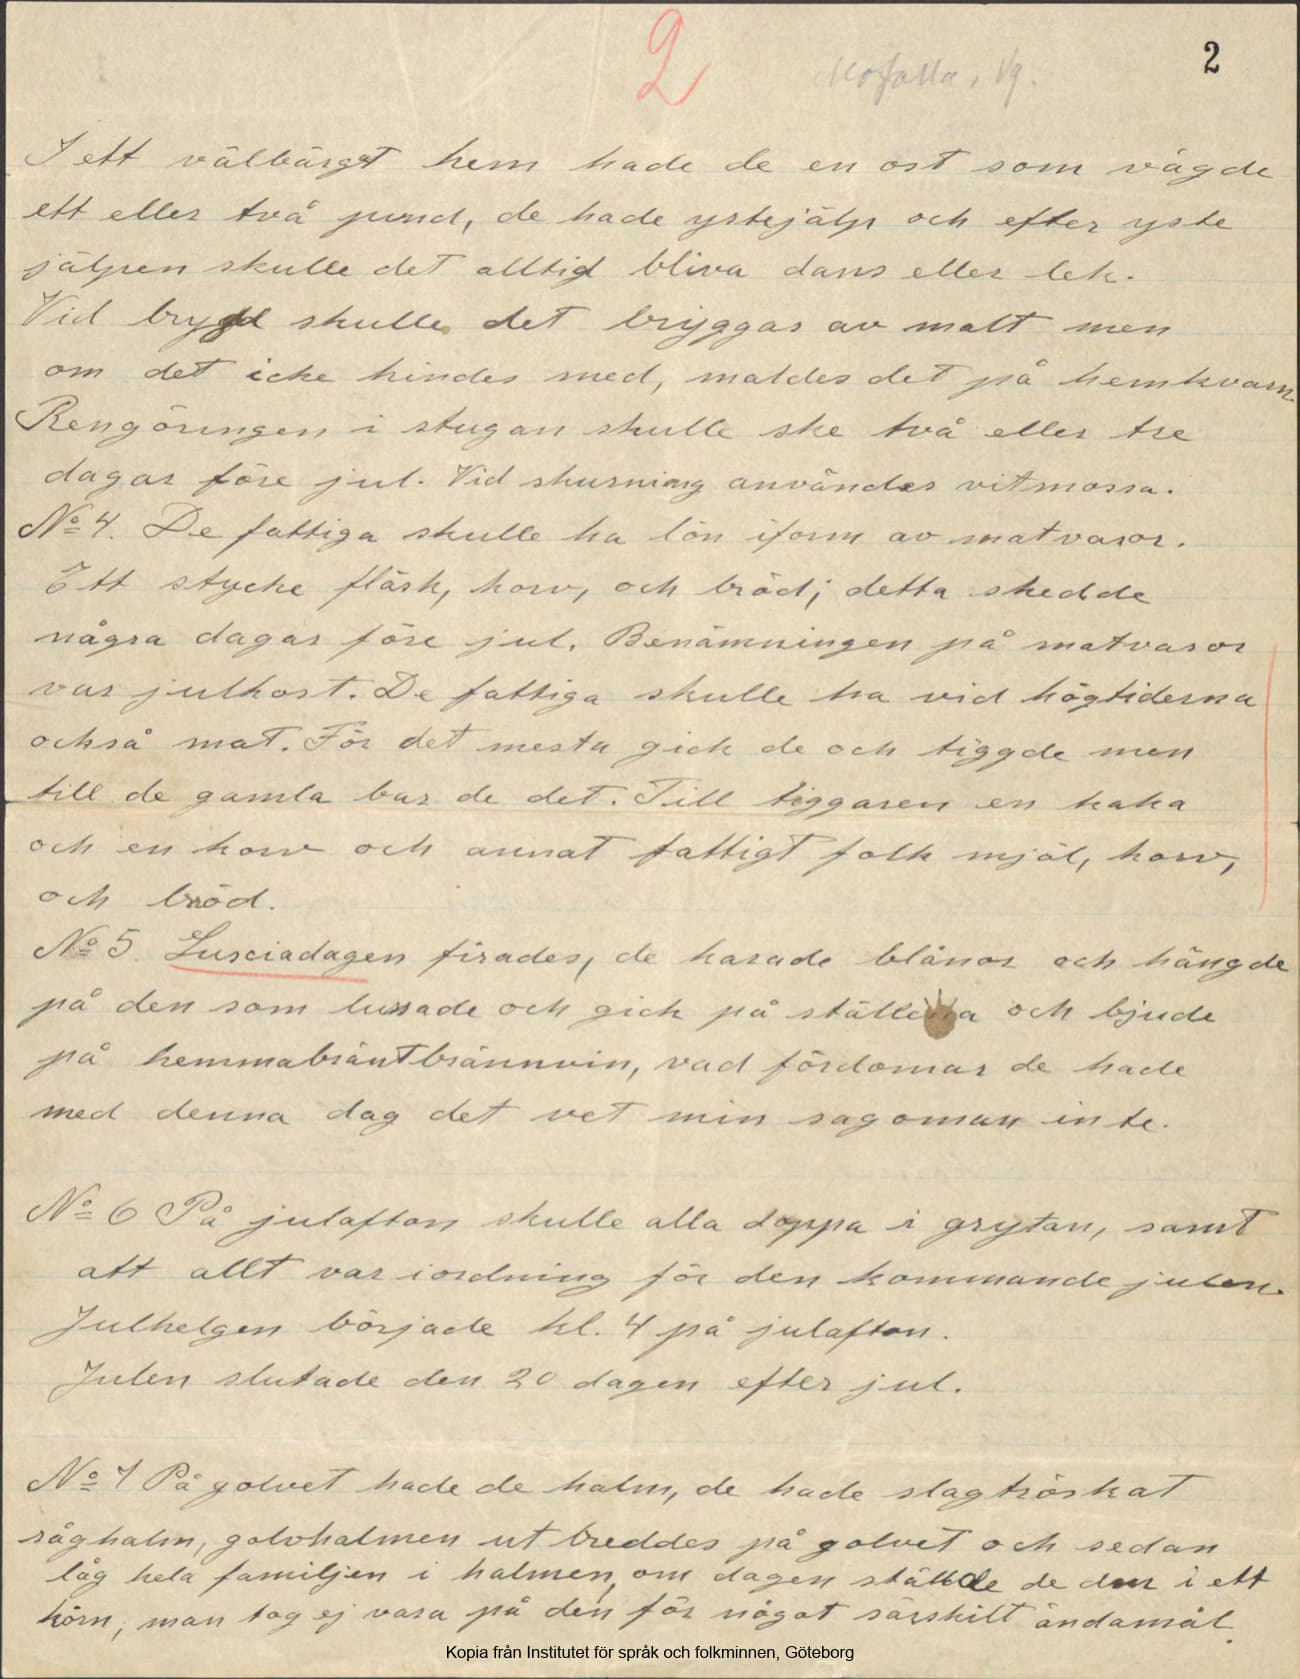 2
Mofalla, Vg.
2
I ett välbärgat hem hade de en ost som vägde
ett eller två pund, de hade ystejälp och efter yste
jälpen skulle det alltid bliva dans eller lek.
Vid brygd skulle det bryggas av malt men
om det icke hindes med, maldes det på hemkvarn.
Rengöringen i stugan skulle ske två eller tre
dagar före jul. Vid skurning användes vitmossa.
No 4. De fattiga skulle ha lön iform av matvaror.
Ett stycke fläsk, korv, och bröd; detta skedde
några dagar före jul. Benämningen på matvaror
var julkost. De fattiga skulle ha vid högtiderna
också mat. För det mesta gick de och tiggde men
till de gamla bar de det. Till tiggaren en kaka
och en korv och annat fattigt folk mjöl, korv,
och bröd.
No 5 Lusciadagen firades, de karade blånor och hängde
på den som lussade och gick på ställena och bjude
på hemmabräntbrännvin, vad fördomar de hade
med denna dag det vet min sagoman inte.
No 6 På julafton skulle alla doppa i grytan, samt
att allt var iordning för den kommande julen.
Julhelgen började kl. 4 på julafton.
Julen slutade den 20 dagen efter jul.
No 7 På golvet hade de halm, de hade slagtröskat
råghalm, golvhalmen ut breddes på golvet och sedan
låg hela familjen i halmen, om dagen ställde de den i ett
hörn; man tog ej vara på den för något särskilt ändamål.
Kopia från Institutet för språk och folkminnen, Göteborg